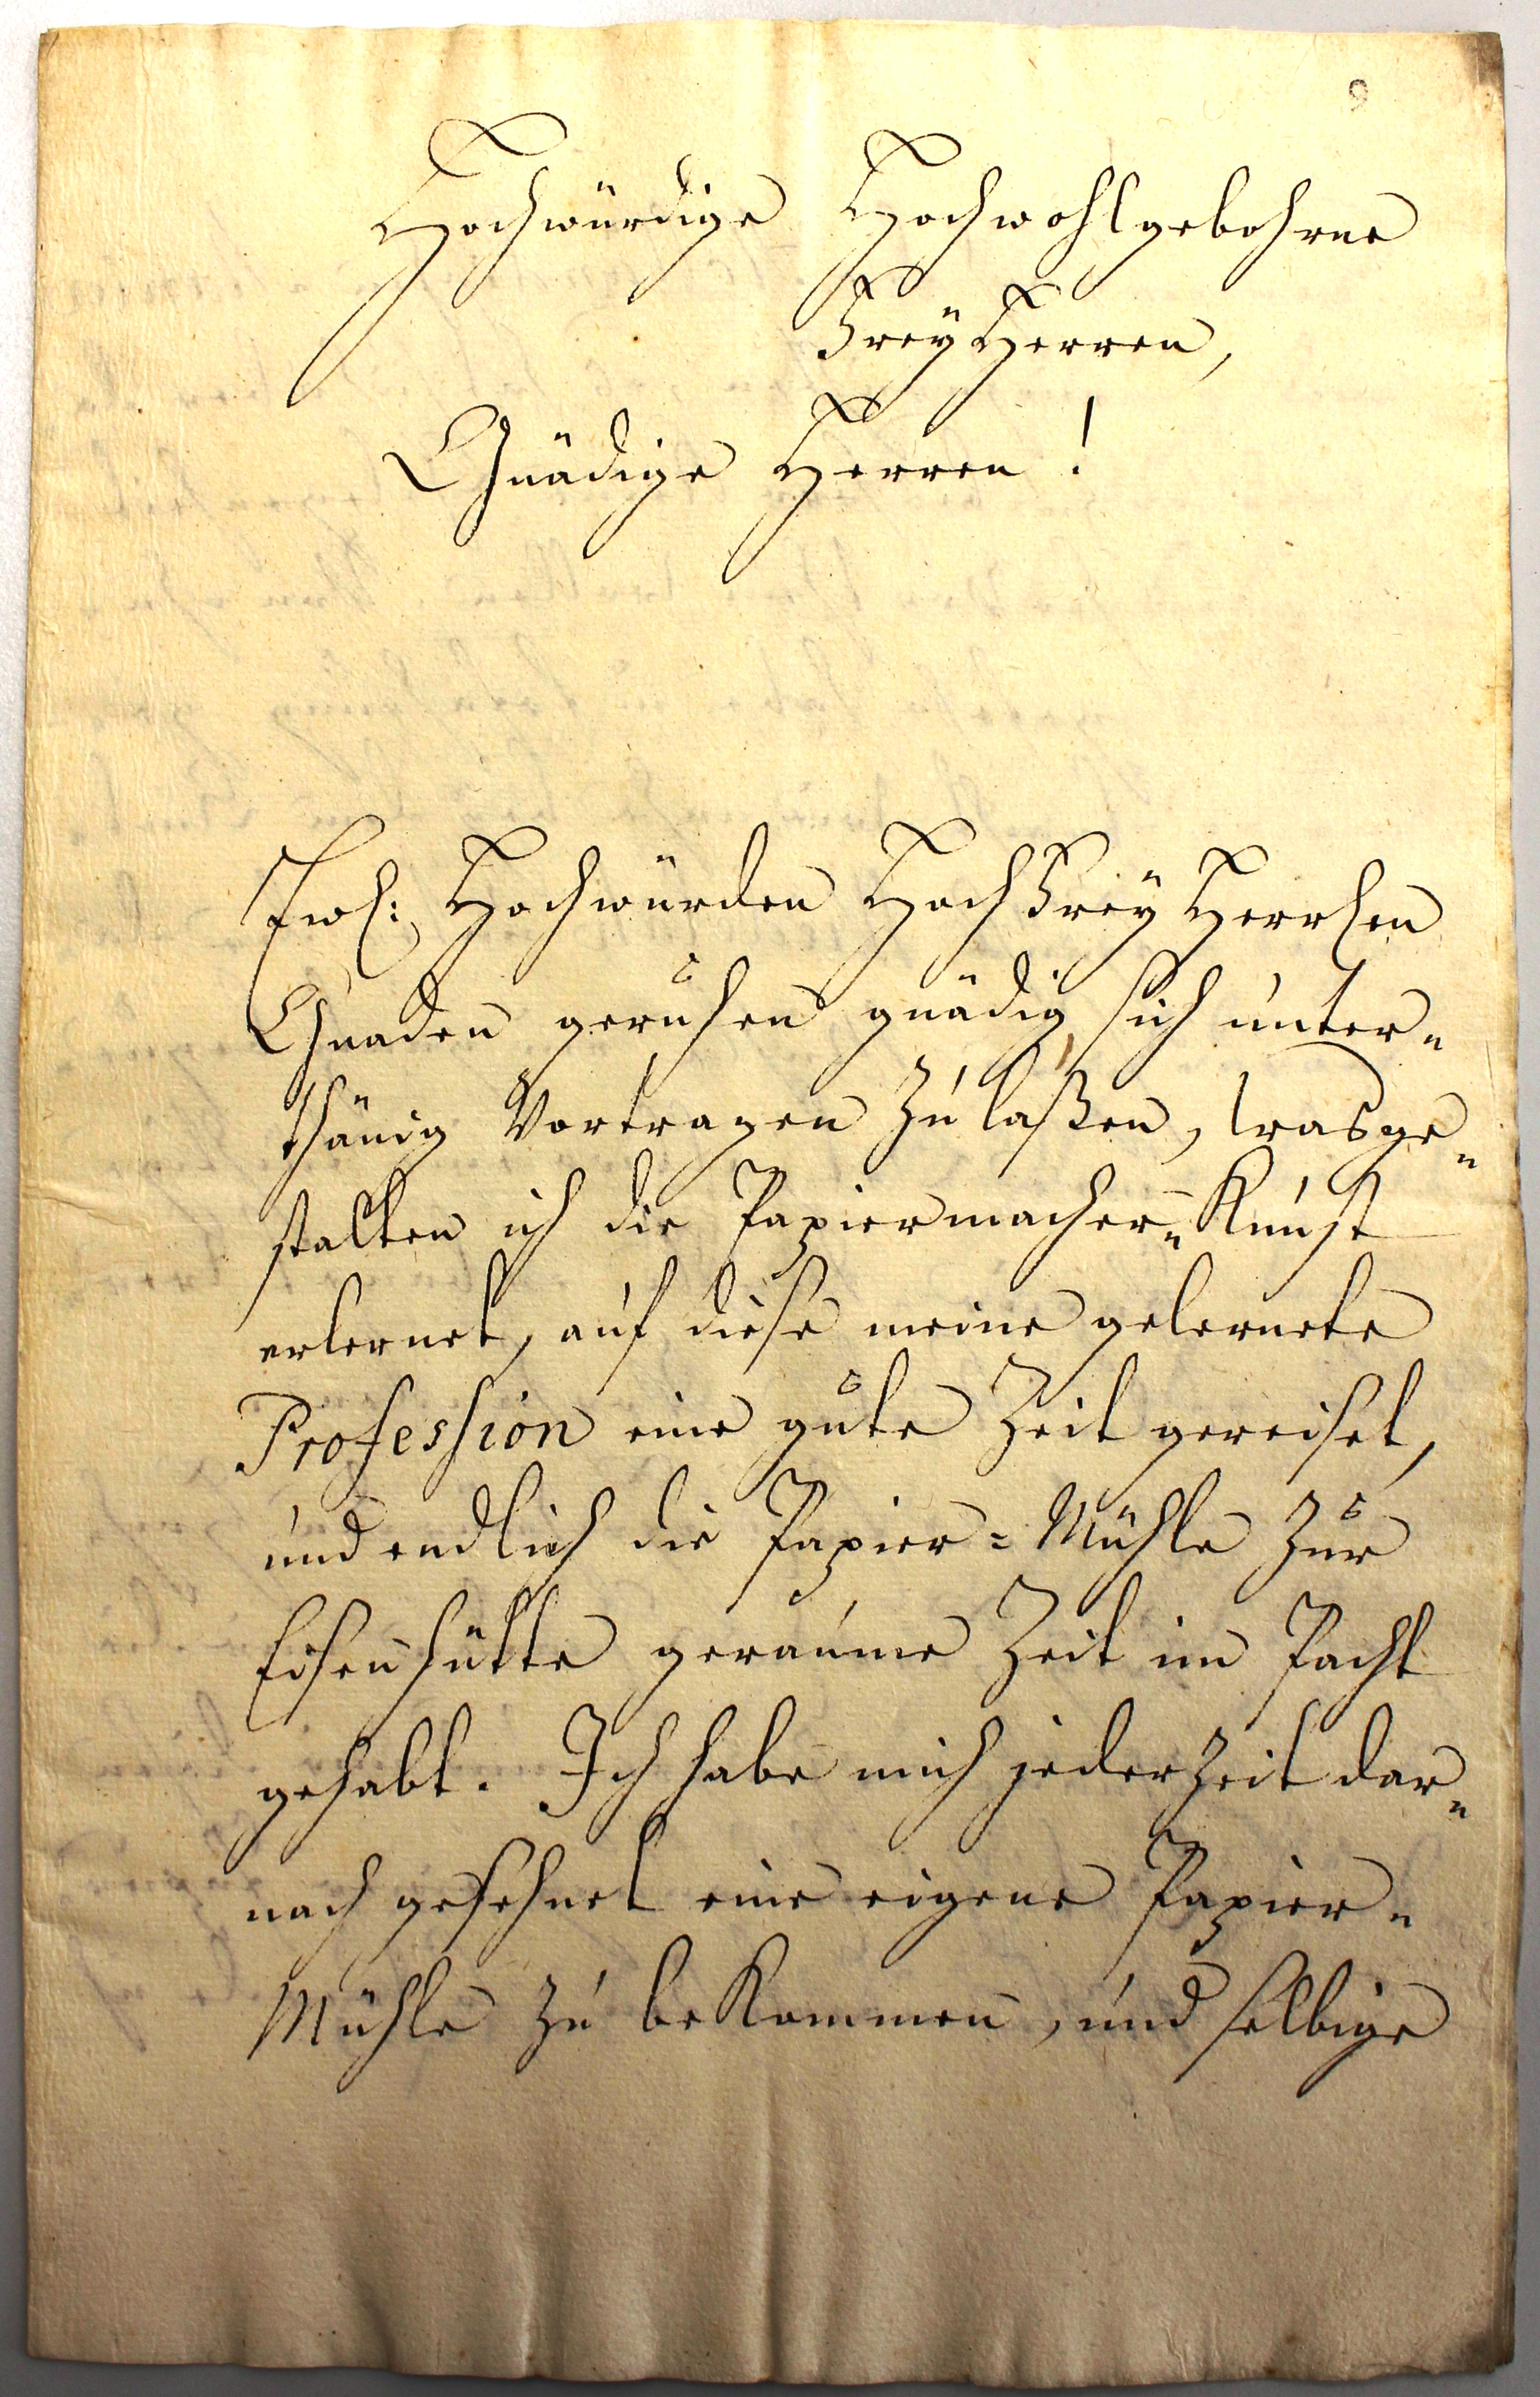 9
Hochwürdige Hochwohlgebohrne
FreÿHerren,
Gnädige Herren!
Ewl: Hochwürden HochFreÿHerrlen
Gnaden geruhen gnädig, sich unter=
thänig Vortragen zu laßen, wasge=
stalten ich die Papiermacher=Kunst
erlernet, auf diese meine gelernete
Profession eine gute Zeit gereiset,
und endlich die Papier=Mühle zur
Eisenhütte geraume Zeit im Pacht
gehabt. Ich habe mich jederzeit dar=
nach gesehnet eine eigene Papier=
Mühle zu beKommen, und selbige